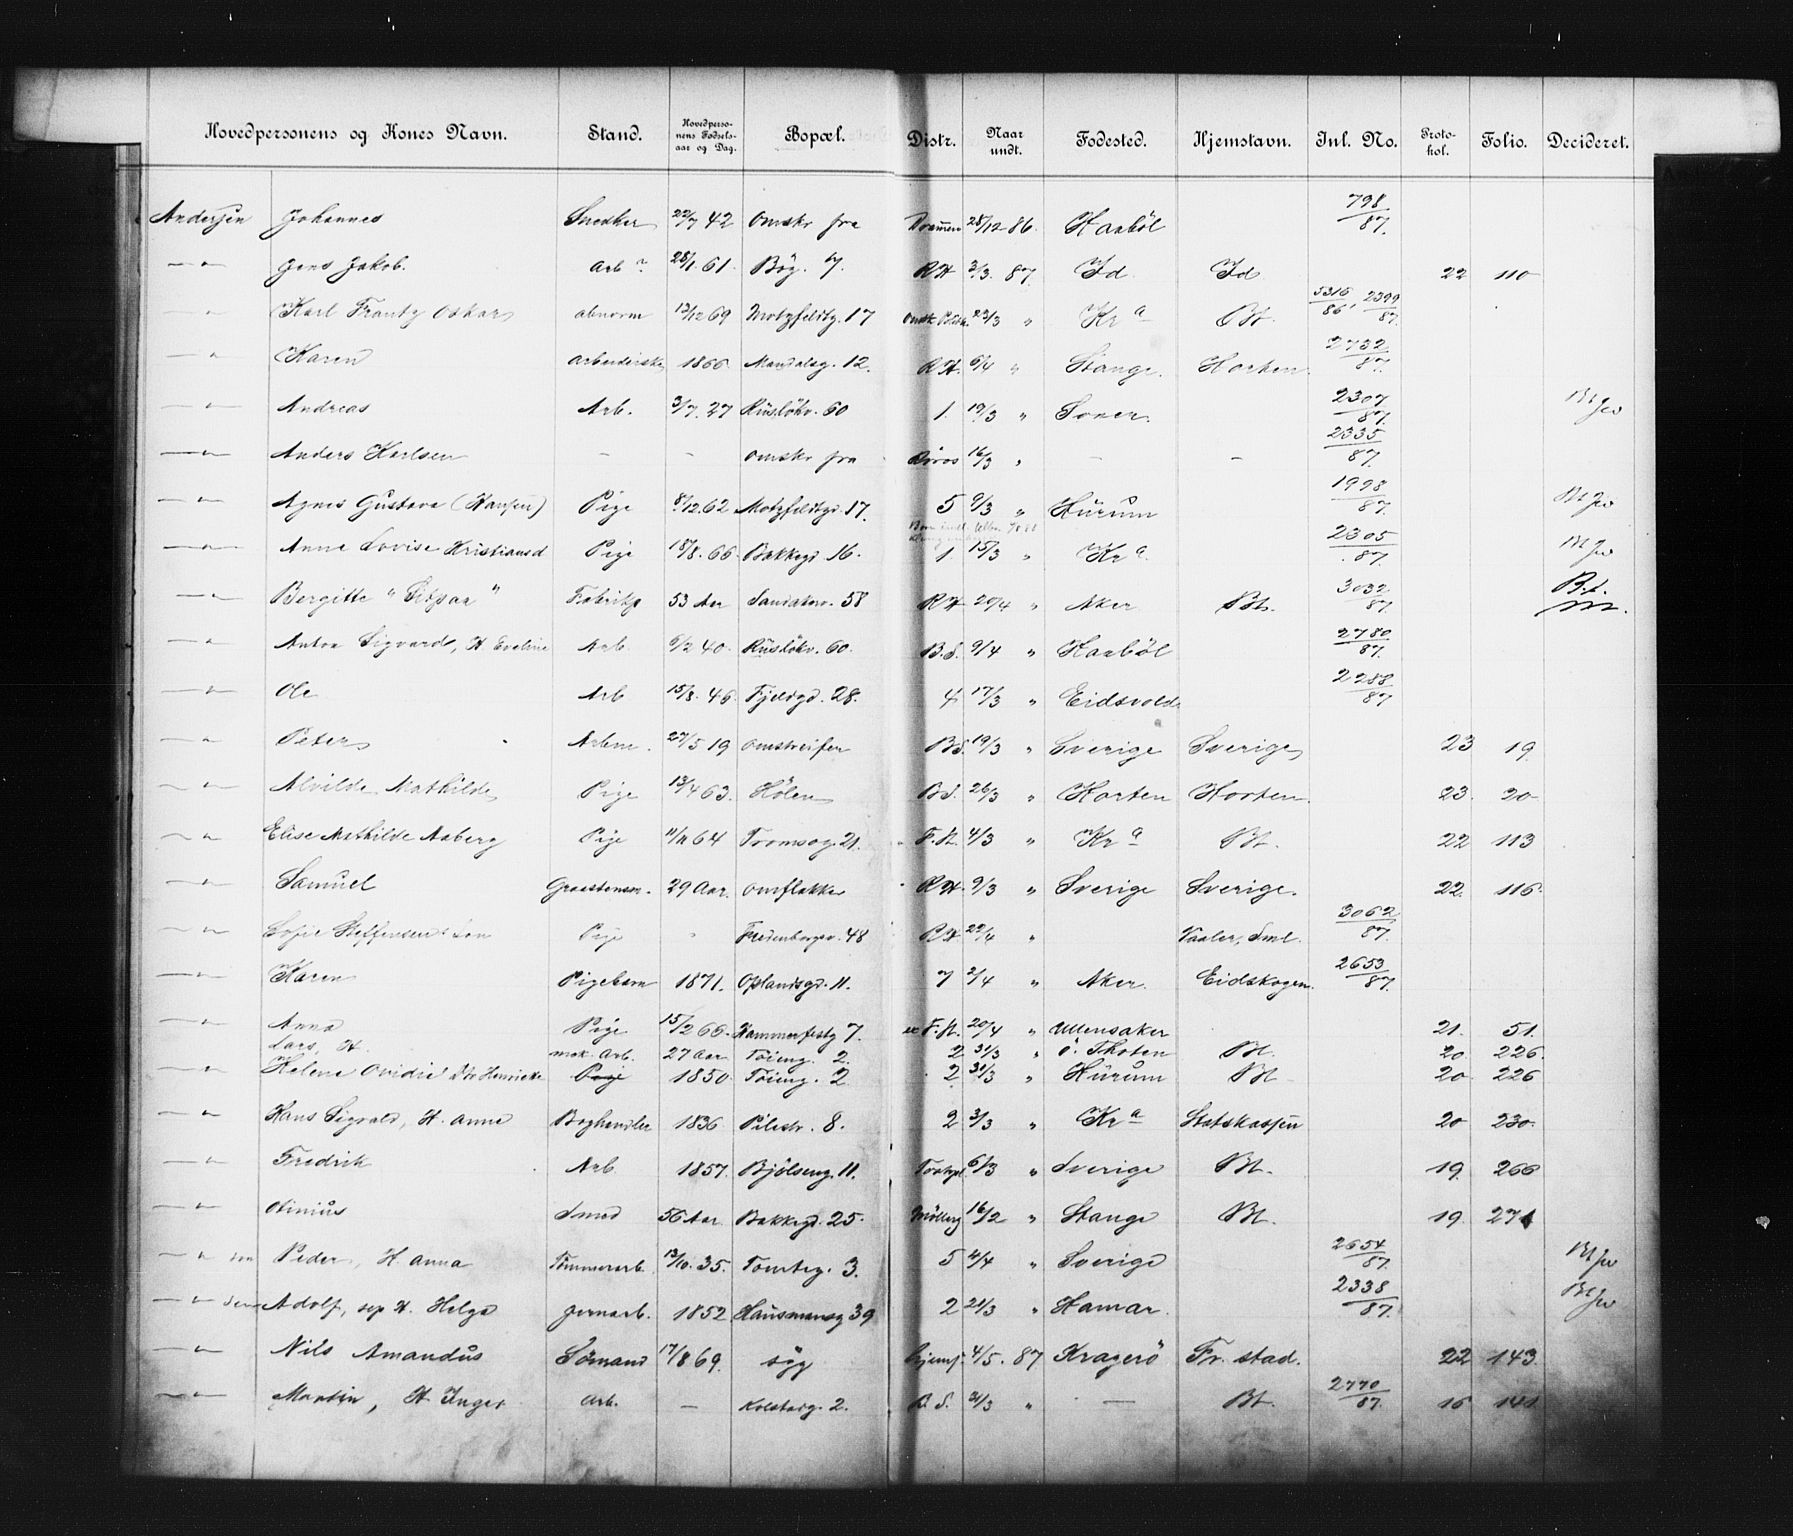 Hovedpersonens og Kones Navn. Stand. Hovedperso-nens Fødsels-aar og Dag. Bopæl. Distr. Naar undt. Fødested. Hjemstavn. Inl. No. Proto-kol. Folio. Decideret.
Andersen Johannes Snedker 22/7 42 omskr fra Drammen 28/12 86. Haabøl 798/87.
—"— Jens Jakob. Arb 28/1. 61. Bøg. 7. RH 3/3. 87. Id Id 22 110
" Karl Frantz Oskar abnorm 13/12 69 Motzfeldtg. 17 23/3 " Kra Bt. 5316/86, 2399/87.
—"— Karen arbeiderske 1866. Mandalsg. 12. RH. 6/4 " Stange. Horten. 2732/87.
—"— Andreas Arb. 3/7. 27 Rüsløkv. 60 1. 19/3 " Soner. 2307/87.
—"— Anders Karlsen — — omskr fra Røros 16/3 " — — 2335/87.
—"— Agnes Gustava (Hansen) Pige 8/12. 62. Motzfeldtgd. 17. 5 9/3 " Hürum 1998/87.
—"— Anne Lovise Kristiansd Pige 18/8. 66. Bakkegd. 16. 1. 15/3 " Kra 2305/87.
—"— Bergitte " Sibpaa " Fabrikp 53 Aar Sandakerv. 58 RH 20/4 " Aker Bt. 3032/87. Bt.
—"— Anton Sigvard, H. Eveline Arb. 6/2 40. Rüsløkv. 60. B.S. 9/4 " Haabøl 2780/87.
—"— Ole Arb 15/8. 46. Fjeldgd. 28. 4 17/3 " Eidsvold 2288/87
—"— Peter Arbm. 27/5 19 omstreifer BS. 19/3 " Sverige Sverige 23 19.
—"— Alvilde Mathilde Pige 13/4 63. Hølen BS. 26/3 " Horten Horten. 23. 20
—"— Elise Mathilde Aaberg Pige 11/11 64 Tromsøg. 21. F.St. 4/3 " Kra Bt. 22 113
—"— Samuel Graastensm. 29 Aar. omflakker RH. 9/3 " Sverige Sverige. 22. 116.
—"— Sofie Steffensen Pige " Fredenborgv. 48 RH 22/4 " Vaaler, Sml. 3062/87.
—"— Karen Pigebarn 1871. Oplandsgd. 11. 7 2/4 " Aker. Eidskogen. 2653/87.
—"— Anna Pige 15/2 66. Hammerfestg 7. F.St. 20/4 " Ullensaker 21. 51.
Lars, H. mek. Arb. 27 Aar Tøieng. 2. 2 31/3 " Ø. Thoten Bt. 20. 226.
—"— Helene Ovidie Dtr Henrikke Pige 1850. Tøieng. 2 2 31/3 " Hürum Bt 20. 226
—"— Hans Sigvald, H. Anne Boghandler 1836 Pilestr. 8. 2 3/3 " Kra Statskassen 20 230.
—"— Fredrik Arb. 1857. Bjølseng. 11. 6/3 " Sverige Bt. 19. 266
—"— Otinius Smed 56 Aar Bakkegd. 25. Møllerg 16/2 " Stange Bt. 19. 271
—"— Peder, H. Anna Tømmerarb. 13/10. 35. Tomteg. 3. 5 4/4 " Sverige 2654/87.
—"— Adolf, sep H. Helga Jernarb. 1852 Hausmansg 39 2 21/3 " Hamar. 2338/87.
—"— Nils Amandus Sømand 17/8 69. syg 4/5. 87 Kragerø Fr. stad. 22 143.
—"— Martin, H. Inger Arb. — Kolstadg. 2. B.S. 31/3 " — Bt. 2770/87. 16 141